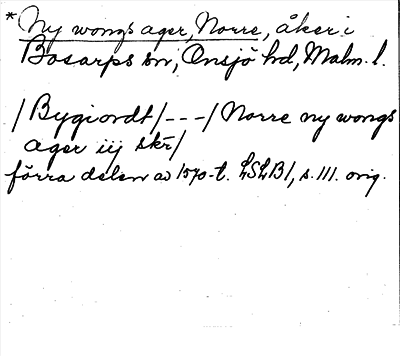 *Ny wongs ager, Norre, åker i
Bosarps sn, Onsjö hd, Malm. l.
/Bygiordt/---/Norre ny wongs
ager iij skr/
förra delen av 1570-t. LSLB1, s. 111. orig.